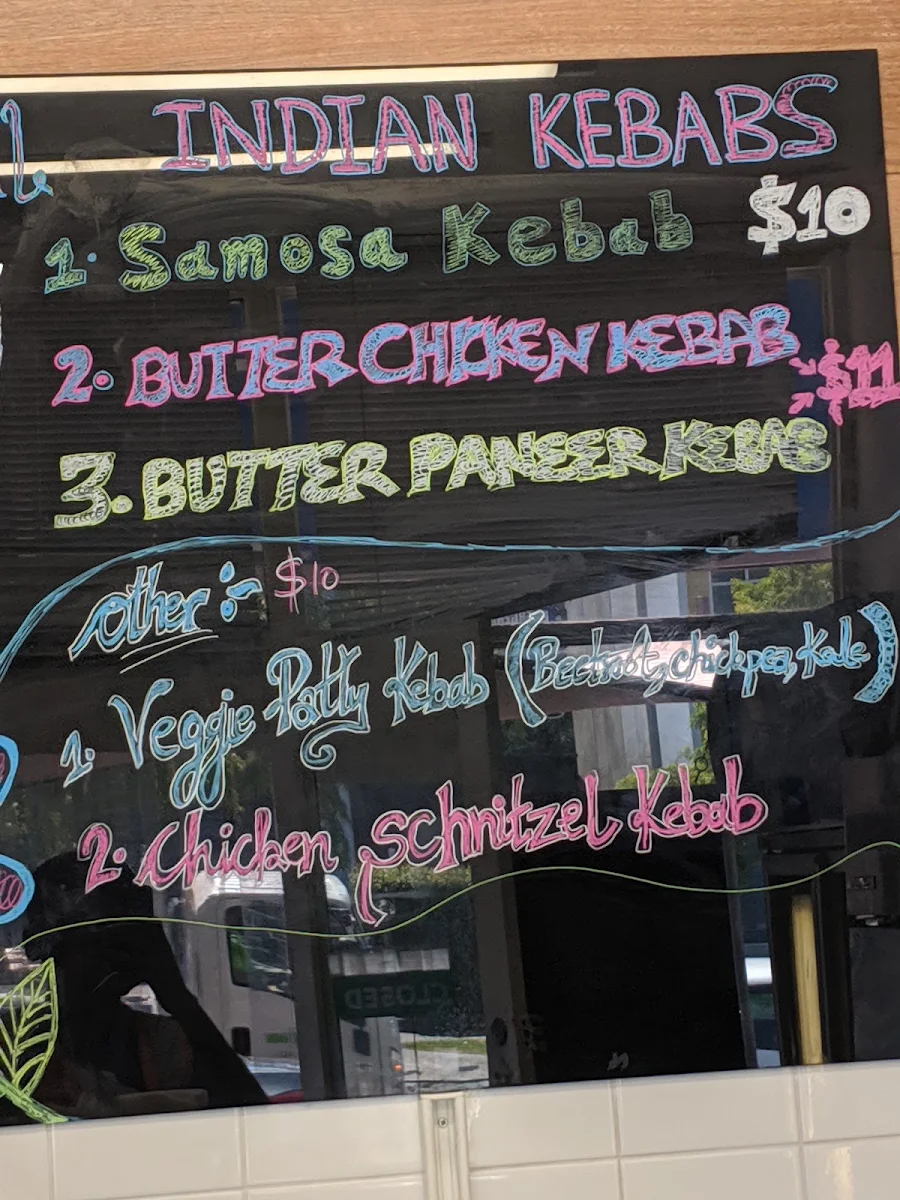 INDIAN KEBABS
1. Samosa Kebab $10
2. BUTTER CHICKEN KEBAB
$11
3. BUTTER PANEER KEBAB
Other :- $10
1. Veggie Patty Kebab (Beetroot, chickpea, Kale)
2. Chicken Schnitzel Kebab
CLOSED